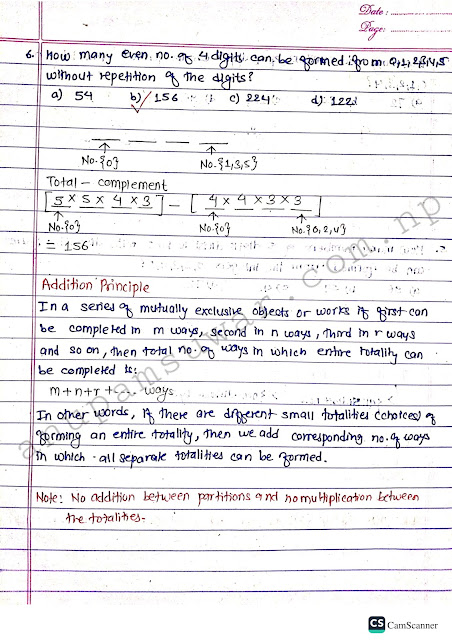 Date:
Page:
6. How many even no. of 4 digits can be formed from 0,1,2,3,4,5
without repetition of the digits?
a) 54 b) 156 c) 224 d) 122
No.{0} No.{1,3,5}
Total - complement
[5 × 5 × 4 × 3] - [4 × 4 × 3 × 3]
No.{0} No.{0} No.{0,2,4}
= 156
Addition Principle
In a series of mutually exclusive objects or works if first can
be completed in m ways, second in n ways, third in r ways
and so on, then total no. of ways in which entire totality can
be completed is:
m+n+r+... ways
In other words, if there are different small totalities (choices) of
forming an entire totality, then we add corresponding no. of ways
in which all separate totalities can be formed.
Note: No addition between partitions and no multiplication between
the totalities.
anupamsuwar.com.np
CS CamScanner